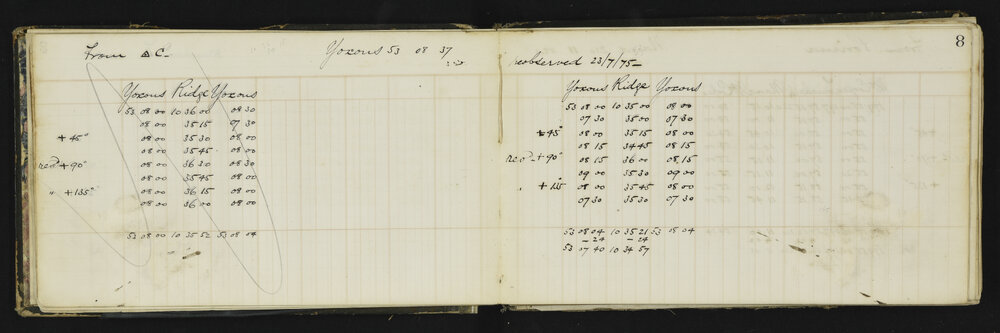 From △ C Yoxons 53 08 37
Yoxons Ridge Yoxons
53 08 00 10 36 00 08 30
08 00 35 15 07 30
+ 45° 08 00 35 30 08 00
08 00 35 45 08 00
red + 90° 08 00 36 30 08 30
08 00 35 45 08 00
" + 135° 08 00 36 15 08 00
08 00 36 00 08 00
53 08 00 10 35 52 53 08 04
8
reobserved 23/7/75
Yoxons Ridge Yoxons
53 08 00 10 35 00 08 00
07 30 35 00 07 30
+ 45° 08 00 35 15 08 00
08 15 34 45 08 15
red + 90° 08 15 36 00 08 15
09 00 35 30 09 00
+ 135 08 00 35 45 08 00
07 30 35 30 07 30
53 08 04 10 35 21 53 08 04
- 24 - 24
53 07 40 10 34 57